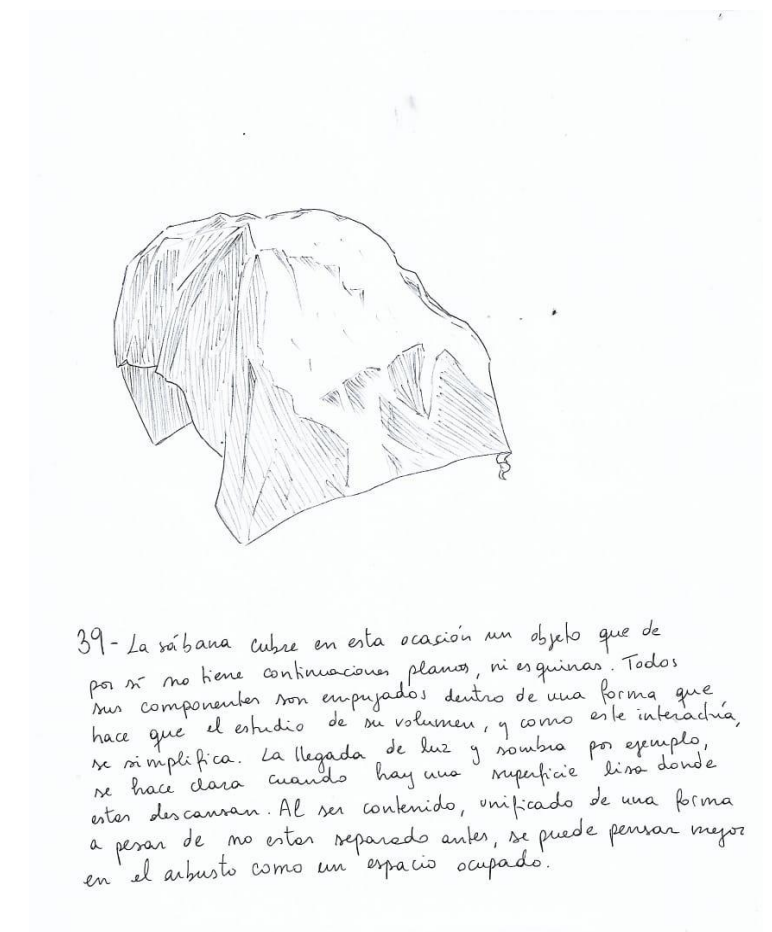 39- La sábana cubre en esta ocasión un objeto que de
por sí no tiene continuaciones planas, ni esquinas. Todos
sus componentes son empujados dentro de una forma que
hace que el estudio de su volumen, y como este interactúa,
se simplifica. La llegada de luz y sombra por ejemplo,
se hace clara cuando hay una superficie lisa donde
estas descansan. Al ser contenido, unificado de una forma
a pesar de no estar separado antes, se puede pensar mejor
en el arbusto como un espacio ocupado.